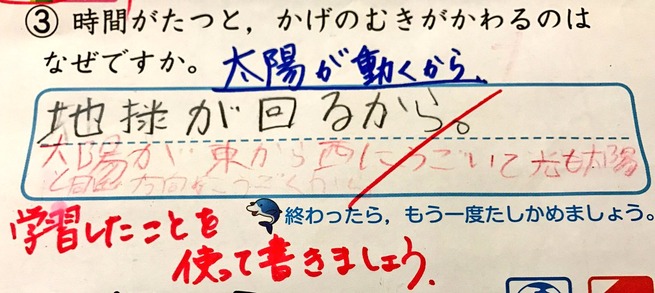 ③ 時間がたつと，かげのむきがかわるのは
なぜですか。 太陽が動くから、
地球が回るから。
太陽が 東から西にうごいて 光も太陽
と 方向をうごくから
終わったら，もう一度たしかめましょう。
学習したことを
使って書きましょう。